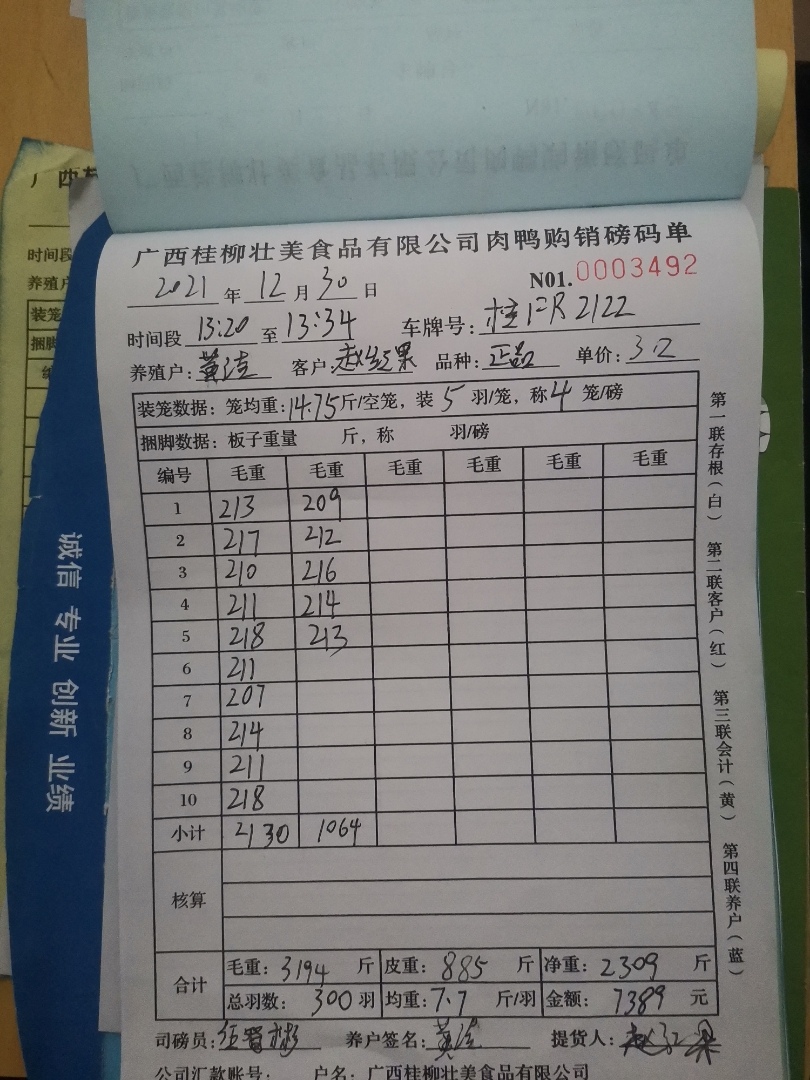 广西桂柳壮美食品有限公司肉鸭购销磅码单
2021 年 12 月 30 日 N01. 0003492
时间段 13:20 至 13:34 车牌号: 桂FR2122
养殖户: 客户: 品种: 正品 单价: 3.2
装笼数据: 笼均重: 14.75 斤/空笼, 装 5 羽/笼, 称 4 笼/磅
捆脚数据: 板子重量 斤, 称 羽/磅
编号 毛重 毛重 毛重 毛重 毛重 毛重
1 213 209
2 217 212
3 210 216
4 211 214
5 218 213
6 211
7 207
8 214
9 211
10 218
小计 2130 1064
核算
合计 毛重: 3194 斤 皮重: 885 斤 净重: 2309 斤
总羽数: 300 羽 均重: 7.7 斤/羽 金额: 7389 元
司磅员: 养户签名: 提货人:
公司汇款账号: 户名: 广西桂柳壮美食品有限公司
第一联存根(白) 第二联客户(红) 第三联会计(黄) 第四联养户(蓝)
诚信 专业 创新 业绩
广西
时间段
养殖户
装笼
捆脚